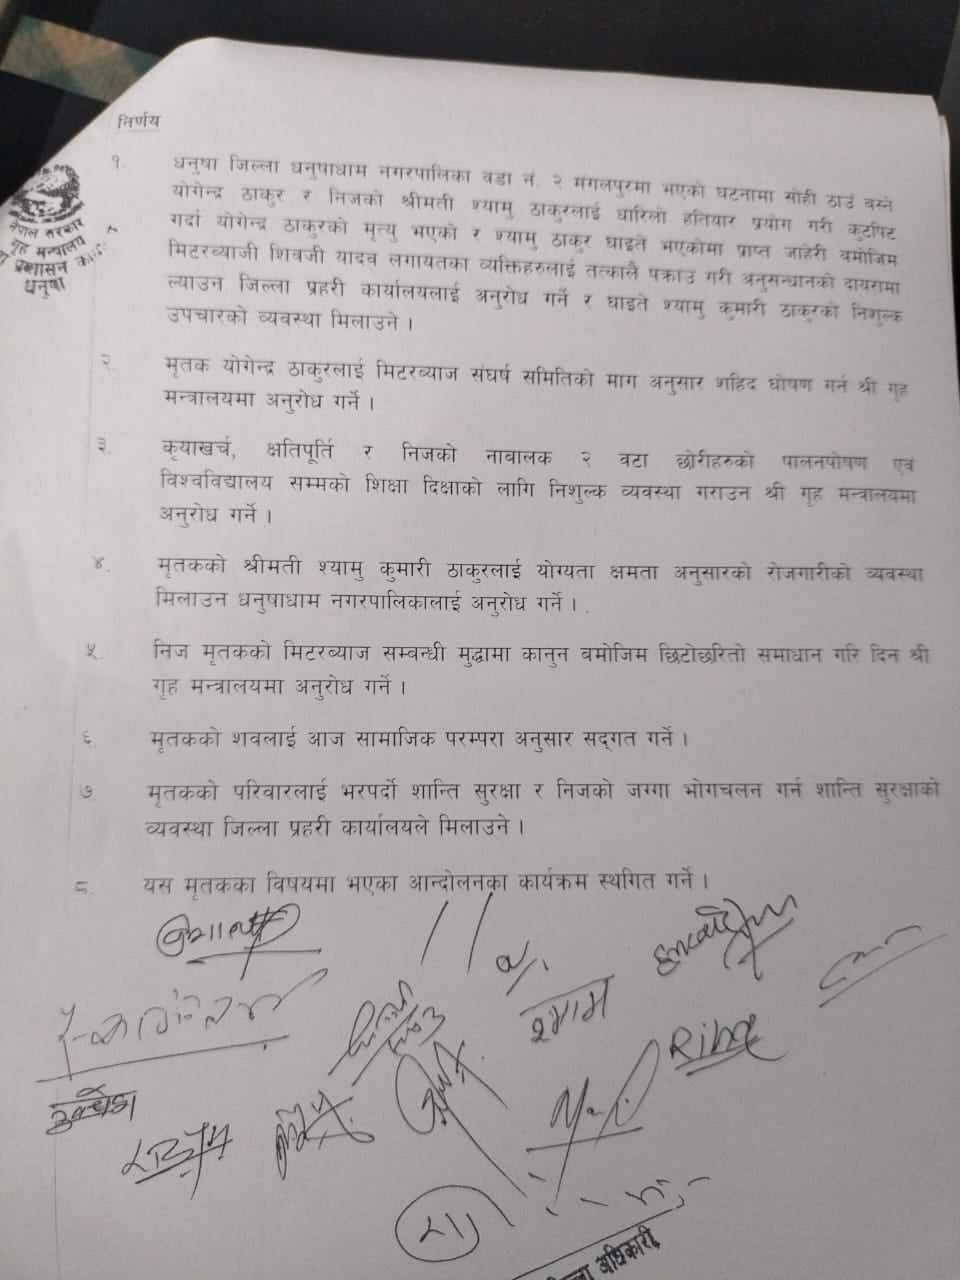 निर्णय
नेपाल सरकार
गृह मन्त्रालय
प्रशासन कार्या
धनुषा
१. धनुषा जिल्ला धनुषाधाम नगरपालिका वडा नं. २ मंगलपुरमा भएको घटनामा सोही ठाउँ बस्ने
योगेन्द्र ठाकुर र निजको श्रीमती श्यामु ठाकुरलाई धारिलो हतियार प्रयोग गरी कुटपिट
गर्दा योगेन्द्र ठाकुरको मृत्यु भएको र श्यामु ठाकुर घाइते भएकोमा प्राप्त जाहेरी बमोजिम
मिटरब्याजी शिवजी यादव लगायतका व्यक्तिहरुलाई तत्कालै पक्राउ गरी अनुसन्धानको दायरामा
ल्याउन जिल्ला प्रहरी कार्यालयलाई अनुरोध गर्ने र घाइते श्यामु कुमारी ठाकुरको निशुल्क
उपचारको व्यवस्था मिलाउने ।
२. मृतक योगेन्द्र ठाकुरलाई मिटरब्याज संघर्ष समितिको माग अनुसार शहिद घोषण गर्न श्री गृह
मन्त्रालयमा अनुरोध गर्ने ।
३. कृयाखर्च, क्षतिपूर्ति र निजको नावालक २ वटा छोरीहरुको पालनपोषण एवं
विश्वविद्यालय सम्मको शिक्षा दिक्षाको लागि निशुल्क व्यवस्था गराउन श्री गृह मन्त्रालयमा
अनुरोध गर्ने ।
४. मृतकको श्रीमती श्यामु कुमारी ठाकुरलाई योग्यता क्षमता अनुसारको रोजगारीको व्यवस्था
मिलाउन धनुषाधाम नगरपालिकालाई अनुरोध गर्ने ।
५. निज मृतकको मिटरब्याज सम्बन्धी मुद्धामा कानुन बमोजिम छिटोछरितो समाधान गरि दिन श्री
गृह मन्त्रालयमा अनुरोध गर्ने ।
६. मृतकको शवलाई आज सामाजिक परम्परा अनुसार सद्गत गर्ने ।
७. मृतकको परिवारलाई भरपर्दो शान्ति सुरक्षा र निजको जग्गा भोगचलन गर्न शान्ति सुरक्षाको
व्यवस्था जिल्ला प्रहरी कार्यालयले मिलाउने ।
८. यस मृतकका विषयमा भएका आन्दोलनका कार्यक्रम स्थगित गर्ने ।
श्याम
अधिकारी